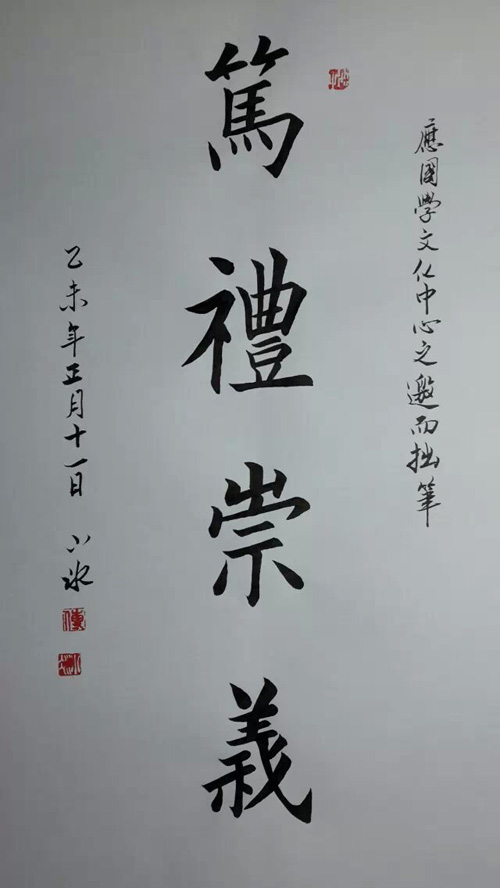 應國學文化中心之邀而拙筆
篤禮崇義
乙未年正月十一日 小冰